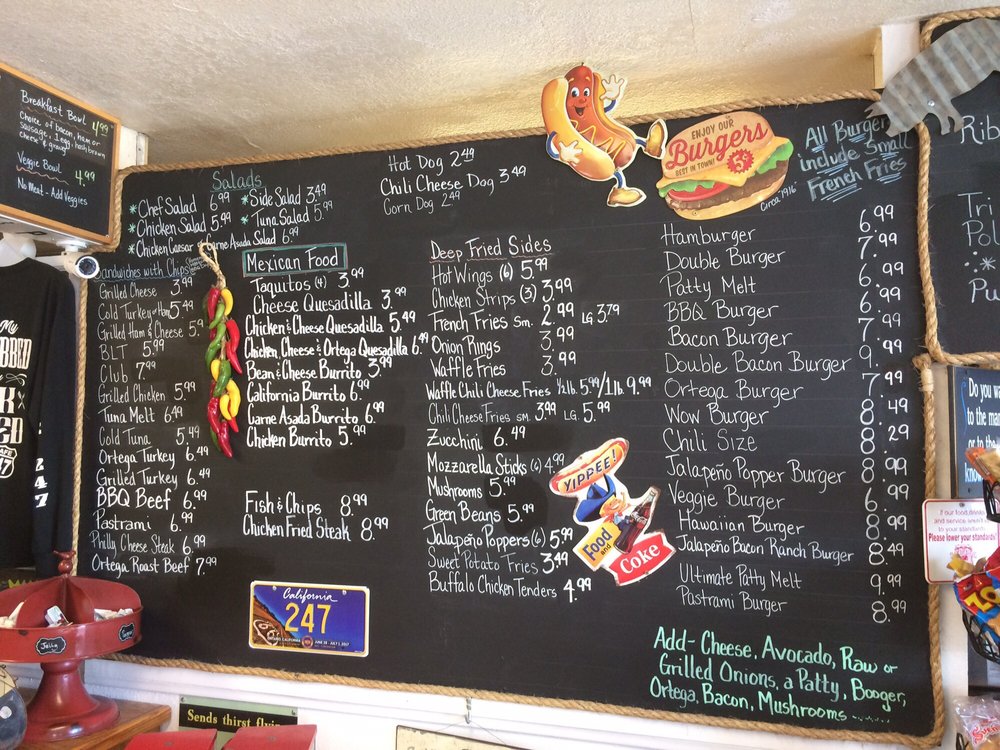 Breakfast Bowl 4.99
Choice of bacon, ham or
sausage, 1 egg, hashbrown
cheese & gravy
Veggie Bowl 4.99
No Meat - Add Veggies
Salads
*Chef Salad 6.99
*Chicken Salad 5.99
*Side Salad 3.49
*Tuna Salad 5.99
*Chicken Caesar or Carne Asada Salad 6.99
Sandwiches with Chips
Grilled Cheese 3.99
Cold Turkey or Ham 5.49
Grilled Ham & Cheese 5.49
BLT 5.99
Club 7.99
Grilled Chicken 5.99
Tuna Melt 6.49
Cold Tuna 5.49
Ortega Turkey 6.49
Grilled Turkey 6.49
BBQ Beef 6.99
Pastrami 6.99
Philly Cheese Steak 6.99
Ortega Roast Beef 7.99
Hot Dog 2.49
Chili Cheese Dog 3.49
Corn Dog 2.49
Mexican Food
Taquitos (4) 3.99
Cheese Quesadilla 3.99
Chicken & Cheese Quesadilla 5.49
Chicken, Cheese & Ortega Quesadilla 6.49
Bean & Cheese Burrito 3.99
California Burrito 6.99
Carne Asada Burrito 6.99
Chicken Burrito 5.99
Fish & Chips 8.99
Chicken Fried Steak 8.99
California
247
Deep Fried Sides
Hot Wings (6) 5.99
Chicken Strips (3) 3.99
French Fries Sm. 2.99 LG 3.79
Onion Rings 3.99
Waffle Fries 3.99
Waffle Chili Cheese Fries 1/2 lb. 5.99/1 lb. 9.99
Chili Cheese Fries SM. 3.99 LG. 5.99
Zucchini 6.49
Mozzarella Sticks (6) 4.99
Mushrooms 5.99
Green Beans 5.99
Jalapeño Poppers (6) 5.99
Sweet Potato Fries 3.49
Buffalo Chicken Tenders 4.99
YIPPEE!
Food and
Coke
ENJOY OUR
Burgers
BEST IN TOWN!
5¢
Circa 1916
All Burgers
include Small
French Fries
Hamburger 6.99
Double Burger 7.99
Patty Melt 7.99
BBQ Burger 6.99
Bacon Burger 7.99
Double Bacon Burger 9.99
Ortega Burger 7.99
Wow Burger 8.49
Chili Size 8.29
Jalapeño Popper Burger 8.99
Veggie Burger 6.99
Hawaiian Burger 8.99
Jalapeño Bacon Ranch Burger 8.49
Ultimate Patty Melt 9.99
Pastrami Burger 8.99
Add- Cheese, Avocado, Raw or
Grilled Onions, a Patty, Booger,
Ortega, Bacon, Mushrooms......
Rib
Tri
Pol
Pu
Do you wa
to the man
or to the
know
f our food, drinks
and service aren't
to your standards
Please lower your standards
My
247
Jelly
Sugar
Sends thirst flying